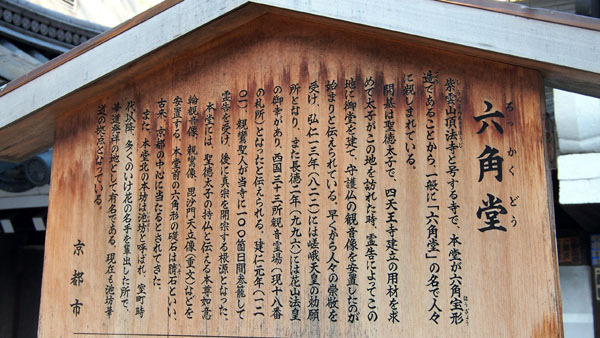 六角堂
ろっかくどう
紫雲山頂法寺と号する寺で、本堂が六角宝形
造であることから、一般に「六角堂」の名で人々
に親しまれている。
開基は聖徳太子で、四天王寺建立の用材を求
めて太子がこの地を訪れた時、霊告によってこの
地に御堂を建て、守護仏の観音像を安置したのが
始まりと伝えられている。早くから人々の崇敬を
受け、弘仁十三年(八二二)には嵯峨天皇の勅願
所となり、また長徳二年(九九六)には花山法皇
の御幸があり、西国三十三所観音霊場(現十八番
の札所)となったと伝えられる。建仁元年(一二
〇一)、親鸞聖人が当寺に一〇〇箇日間参籠して
霊告を受け、後に真宗を開宗する根源となった。
本堂には、聖徳太子の持仏と伝える本尊如意
輪観音像、親鸞像、毘沙門天立像(重文)などを
安置する。本堂前の六角形の礎石は臍石といい、
古来、京都の中心に当たるとされてきた。
また、本堂北の本坊は池坊と呼ばれ、室町時
代以降、多くのいけ花の名手を輩出した所で、
華道発祥の地として有名である。現在も池坊華
道の拠点となっている。
京都市